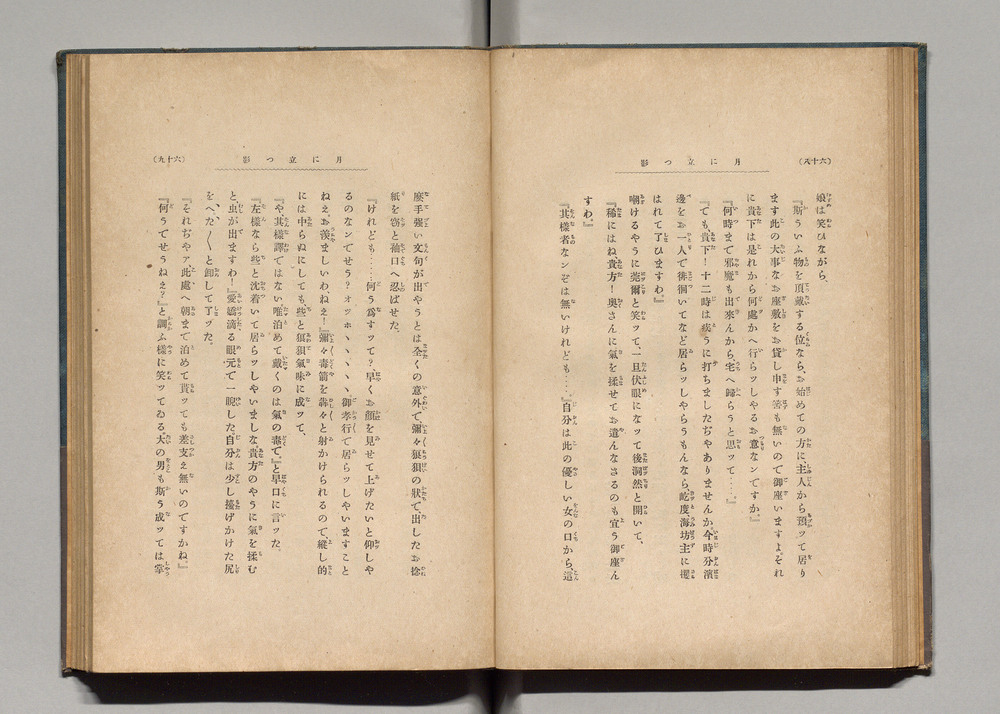 (六十八)
月に立つ影
娘は笑ひながら、
『斯ういふ物を頂戴する位なら、お始めての方に、主人から預ッて居り
ます此の大事なお座敷をお貸し申す筈も無いので御座いますよ。それ
に貴下は是れから何處かへ行らッしやるお意なンですか。』
『何時まで邪魔も出來んから、宅へ歸らうと思ッて‥‥。』
『でも貴下！十二時は疾うに打ちましたぢやありませんか。今時分濱
邊をお一人で徘徊いてなど居らッしやらうもんなら、屹度海坊主に攫
はれて了ひますわ。』
嘲けるやうに莞爾と笑ッて、一旦伏眼になッて後洞然と開いて、
『稀にはね、貴方！奥さんに氣を揉せてお遣んなさるのも宜う御座ん
すわ。』
『其樣者なンぞは無いけれども‥‥。』自分は此の優しい女の口から、這
月に立つ影
(六十九)
麼手强い文句が出やうとは全くの意外で、彌々狼狽の狀で、出したお捻
紙を窃と袖口へ忍ばせた。
『けれども‥‥何う爲すッて？早くお顏を見せて上げたいと仰しや
るのなンでせう？オッホヽヽヽヽヽ御孝行で居らッしやいますこと
ねえ。お羨ましいわねえ！』彌々毒箭を犇々と射かけられるので、縱し的
には中らぬにしても、些と狼狽氣味に成ッて、
『や、其樣譯ではない、唯泊めて戴くのは氣の毒で。』と早口に言ッた。
『左樣なら些と沈着いて居らッしやいましな。貴方のやうに氣を揉む
と、虫が出ますわ！』愛嬌滴る眼元で一睨した。自分は少し擡げかけた尻
を、へた〱と卸して了ッた。
『それぢやァ此處へ朝まで泊めて貰ッても差支え無いのですかね。』
『何うでせうねえ？』と調ふ樣に笑ッてゐる。大の男も斯う成ッては掌